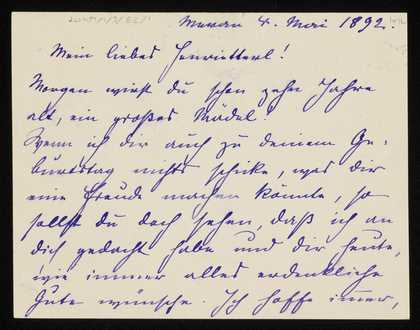 Meran 4. Mai 1892.
Mein liebes Henrietterl!
Morgen wirst du schon zehn Jahre
alt, ein großes Mädel.
Wenn ich dir auch zu deinem Ge-
burtstag nichts schicke, was dir
eine Freude machen könnte, so
sollst du doch sehen, daß ich an
dich gedacht habe und dir heute,
wie immer alles erdenkliche
Gute wünsche. Ich hoffe immer,